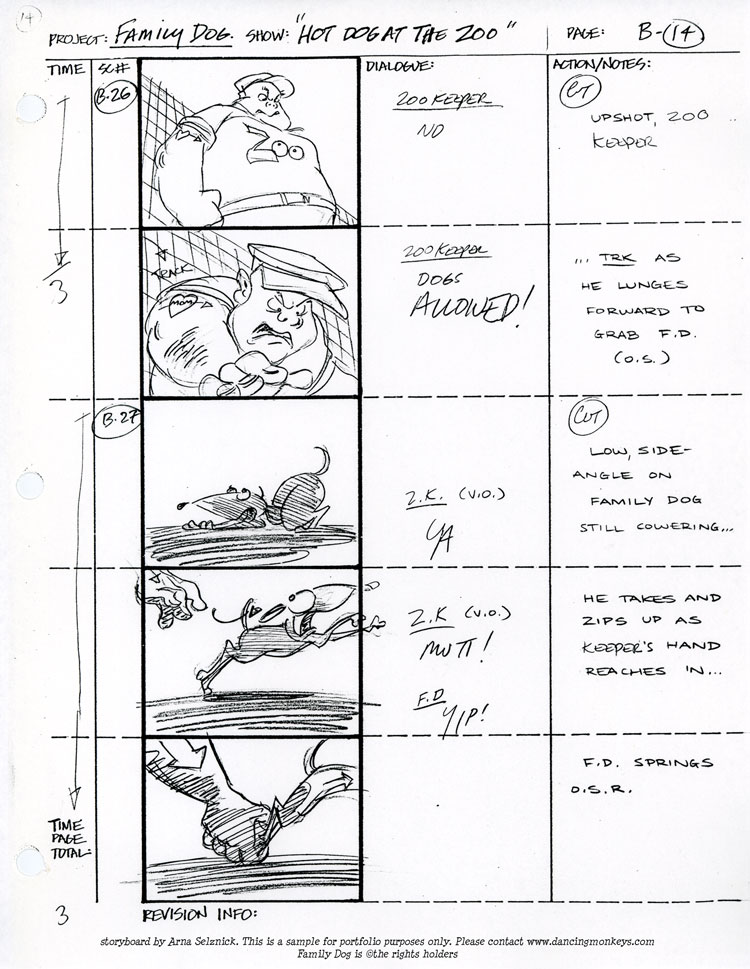 14
PROJECT: FAMILY DOG. SHOW: "HOT DOG AT THE ZOO" PAGE: B-14
TIME SC# DIALOGUE: ACTION/NOTES:
B.26
ZOO
ZOOKEEPER
NO
CUT
UPSHOT, ZOO
KEEPER
3
TRACK
MOM
ZOOKEEPER
DOGS
ALLOWED!
... TRK AS
HE LUNGES
FORWARD TO
GRAB F.D.
(O.S.)
B.27
Z.K. (V.O.)
YA
CUT
LOW, SIDE-
ANGLE ON
FAMILY DOG
STILL COWERING...
Z.K (V.O.)
MUTT!
F.D
YIP!
HE TAKES AND
ZIPS UP AS
KEEPER'S HAND
REACHES IN...
F.D. SPRINGS
O.S.R.
TIME
PAGE
TOTAL:
3
REVISION INFO:
storyboard by Arna Selznick. This is a sample for portfolio purposes only. Please contact www.dancingmonkeys.com
Family Dog is ©the rights holders